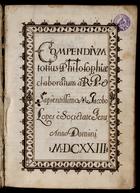 COMPENDIUM
totius Philosophiæ
elaboratum a R. P.
Sapientissimo M. Jacobo
Lopes e Societate Jesu
Anno Domini
MDCXXIII